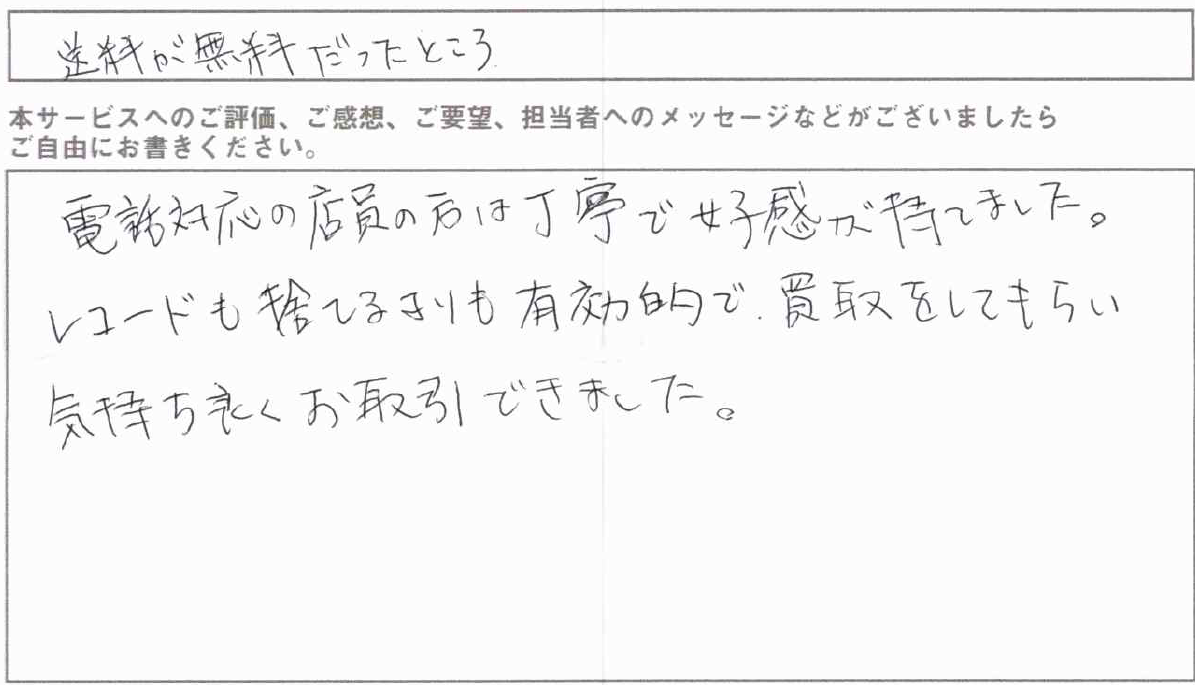 送料が無料だったところ
本サービスへのご評価、ご感想、ご要望、担当者へのメッセージなどがございましたら
ご自由にお書きください。
電話対応の店員の方は丁寧で好感が持てました。
レコードも捨てるよりも有効的で、買取をしてもらい
気持ち良くお取引できました。